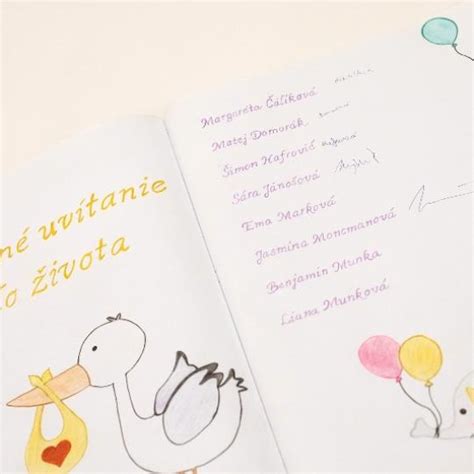 né uvítanie
do života
Margaréta Čaliková
Matej Domorák
Šimon Hafrovič
Sára Jánošová
Ema Marková
Jasmína Moncmanová
Benjamin Munka
Liana Munková